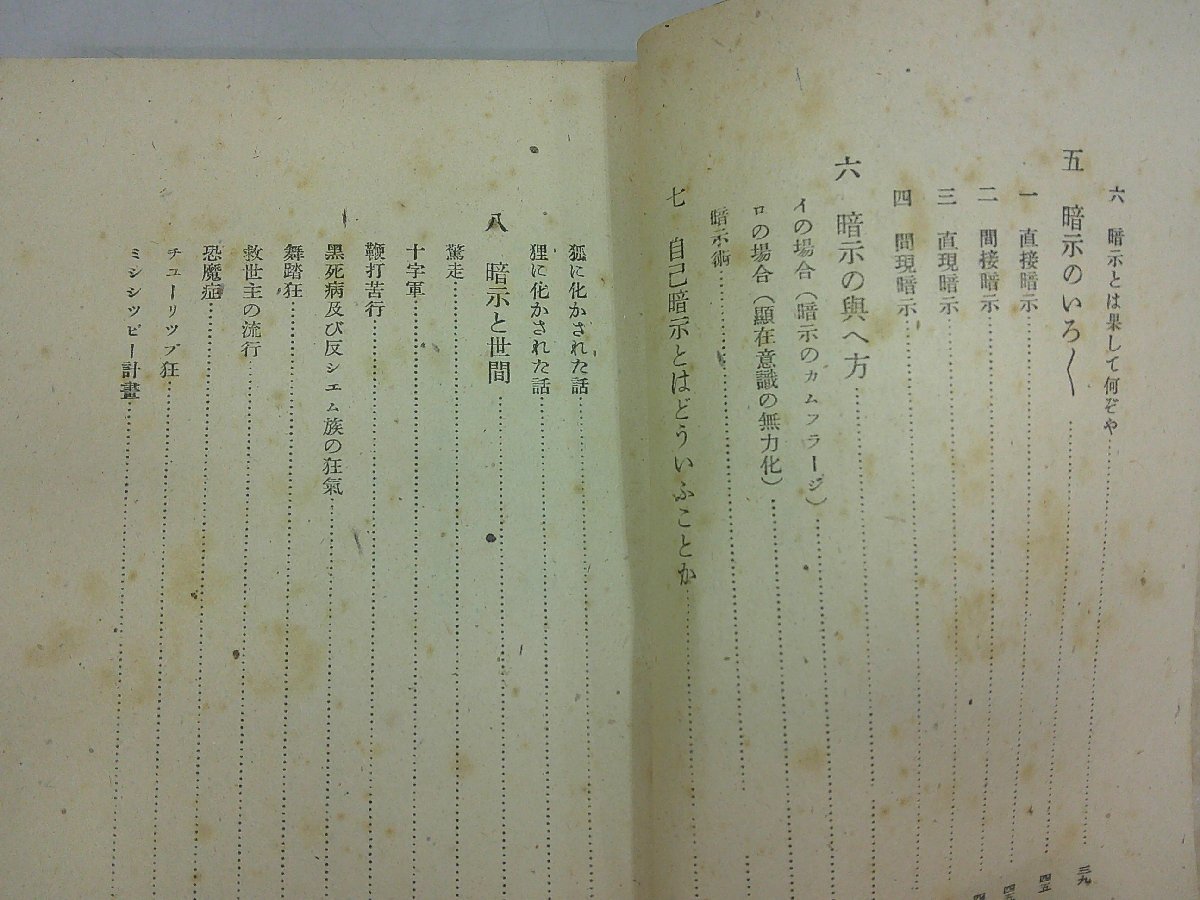 六 暗示とは果して何ぞや 三九
五 暗示のいろ〳〵
一 直接暗示 四五
二 間接暗示
三 直現暗示
四 間現暗示
六 暗示の與へ方
イの場合（暗示のカムフラージ）
ロの場合（顯在意識の無力化）
暗示術
七 自己暗示とはどういふことか
狐に化かされた話
狸に化かされた話
八 暗示と世間
驚走
十字軍
鞭打苦行
黑死病及び反シエム族の狂氣
舞踏狂
救世主の流行
恐魔症
チユーリツプ狂
ミシシツピー計畫